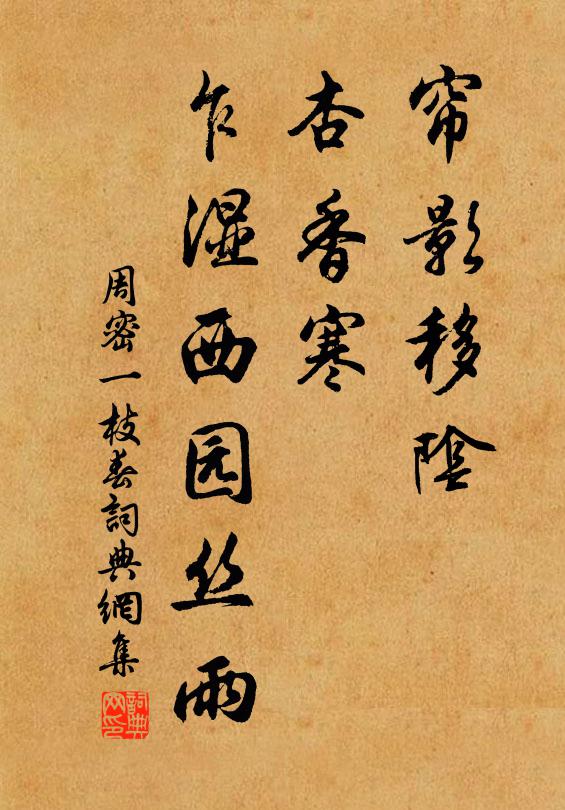 帘影移陰
杏香寒
乍湿西园丝雨
周密一枝春詞典網集
詞典网印